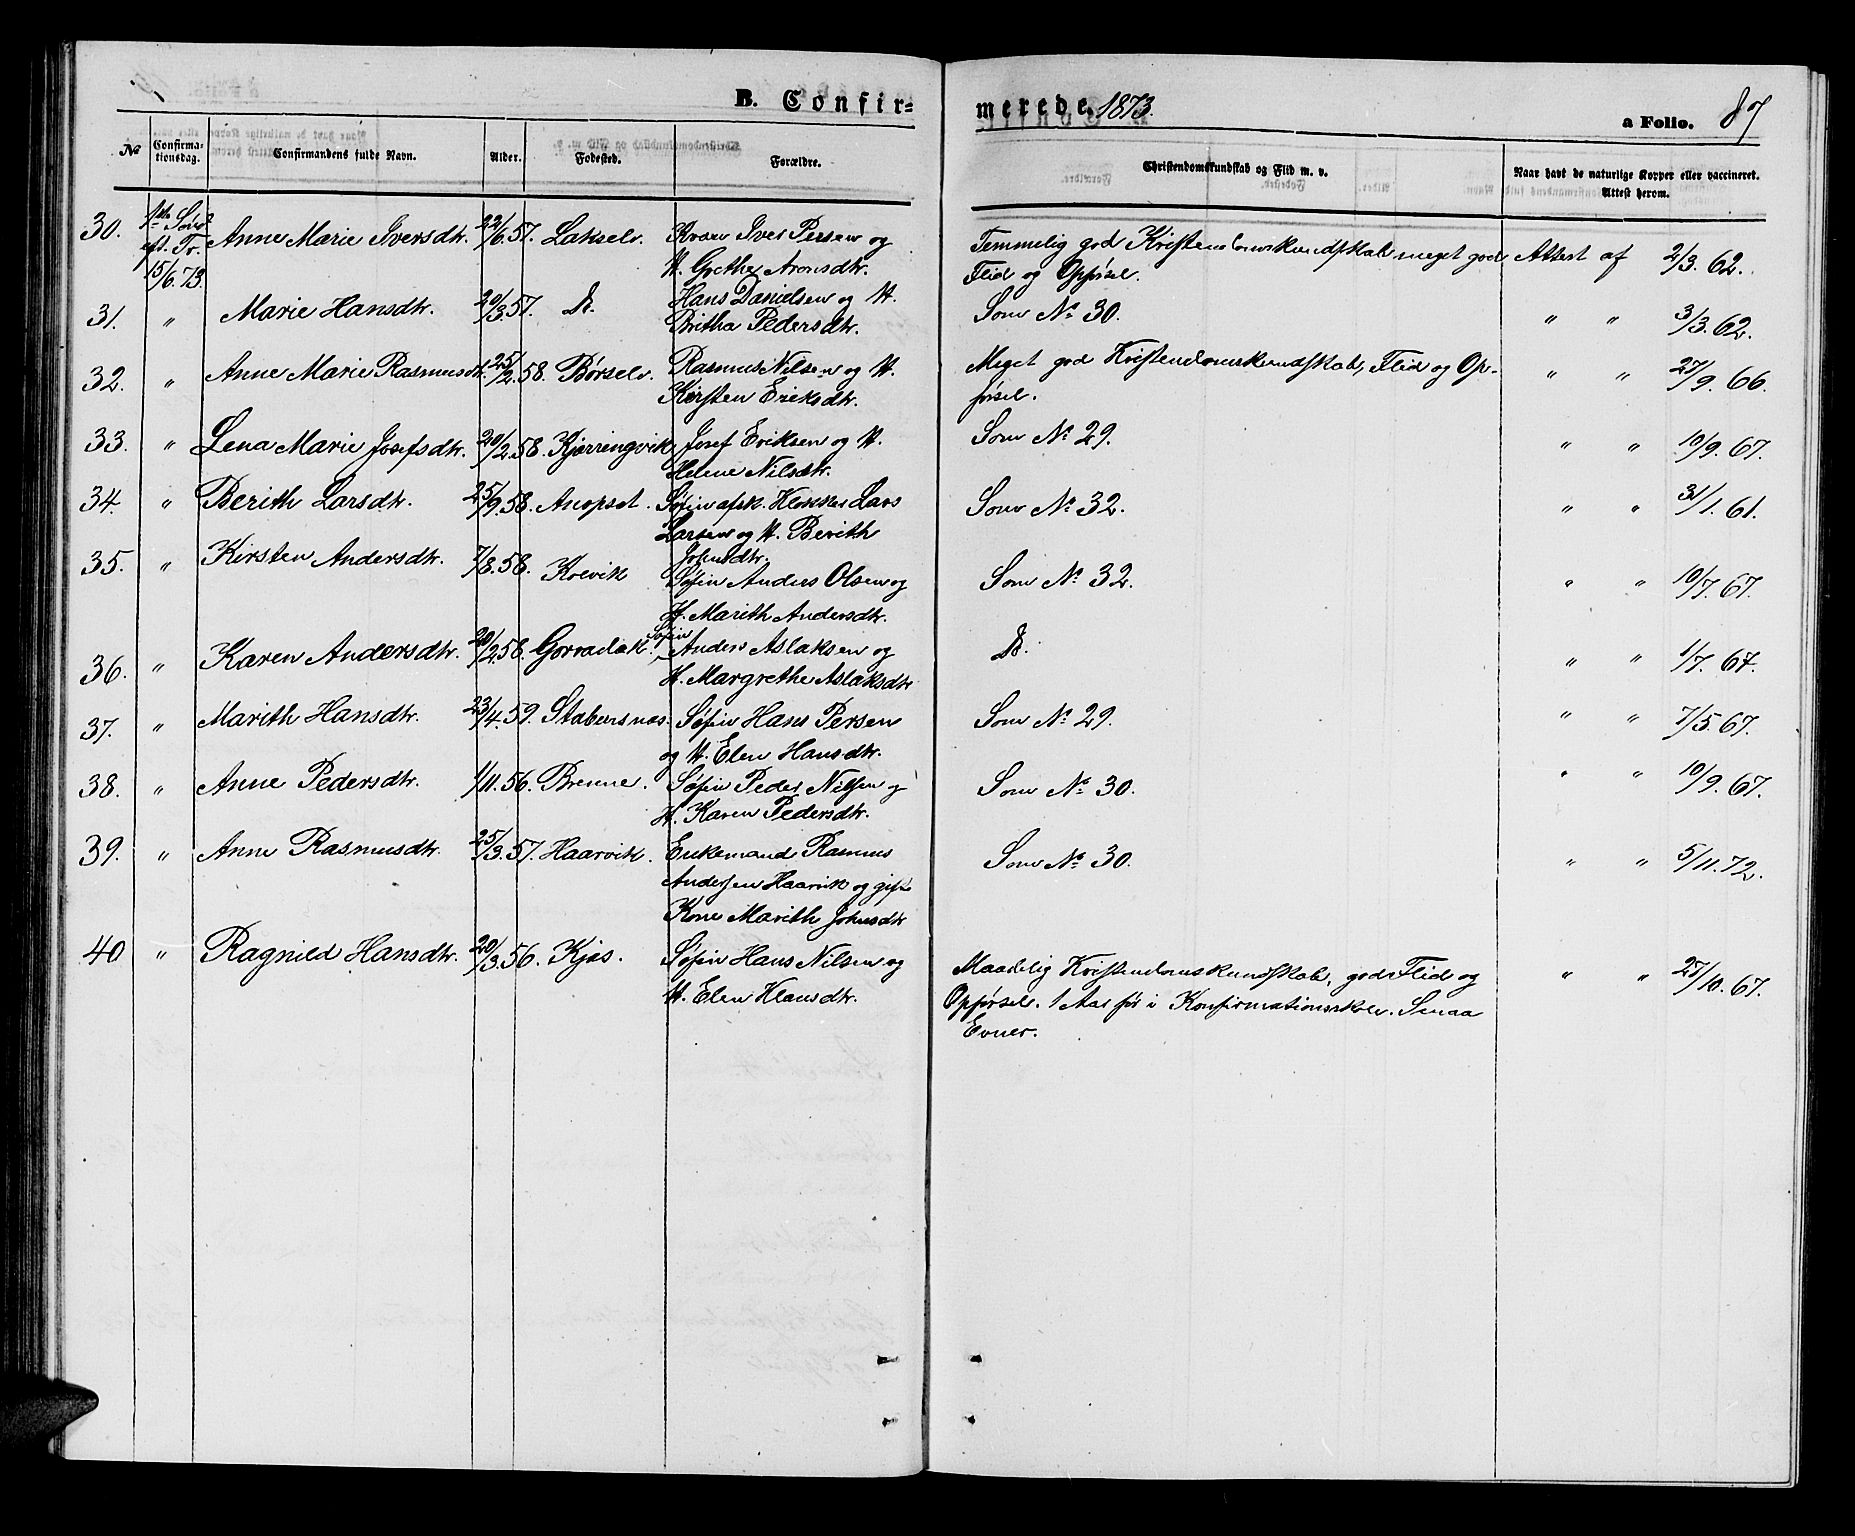 B. Confir-
merede 1873.
a Folio. 87
No Confirma-tionsdag. Confirmandens fulde Navn. Alder. Fødested. Forældre. Christendomskundskab og Flid m. v. Naar havt de naturlige Kopper eller vaccineret. Attest herom.
30. 1ste Sønd. Anne Marie Iversdtr. 22/6.57. Lakselv. Kvæn Iver Persen og Temmelig god Kristendomskundskab meget god Attest af 2/3.62.
eft. Tr. H. Grethe Aronsdtr. Flid og Opførsel.
15/6.73.
31. " Marie Hansdtr. 20/3.57. Do. Hans Danielsen og H. Som No 30. " " 3/3.62.
Britha Pedersdtr.
32. " Anne Marie Rasmusdtr. 25/2.58. Børselv. Rasmus Nilsen og H. Meget god Kristendomskundskab, Flid og Op- " " 27/9.66.
Kirsten Eriksdtr. førsel.
33. " Lena Marie Josefsdtr. 20/2.58. Kjærringvik Josef Eriksen og H. Som No 29. " " 10/9.67.
Helene Nilsdtr.
34. " Berith Larsdtr. 25/9.58. Anopset. Søfin afsk. Klokker Lars Som No 32. " " 31/1.61.
Larsen og H. Berith
Johnsdtr.
35. " Kirsten Andersdtr. 7/8.58. Kolvik Søfin Anders Olsen og Som No 32. " " 10/7.67.
H. Marith Andersdtr.
36. " Karen Andersdtr. 20/2.58. Gorradak. Søfin Anders Aslaksen og Do. " " 1/7.67.
H. Margrethe Aslaksdtr
37. " Marith Hansdtr. 23/4.59. Stabursnæs. Søfin Hans Persen Som No 29. " " 7/5.67.
og H. Elen Hansdtr.
38. " Anne Pedersdtr. 1/11.56. Brenne. Søfin Peder Nilsen og Som No 30. " " 10/9.67.
H. Karen Pedersdtr.
39. " Anne Rasmusdtr. 25/3.57. Haarvik. Enkemand Rasmus Som No 30. " " 5/11.72.
Andersen Haarvik og gift
Kone Marith Johnsdtr
40 " Ragnild Hansdtr. 20/3.56. Kjæs. Søfin Hans Nilsen og Maadelig Kristendomskundskab, god Flid og " " 27/10.67.
H. Elen Klausdtr. Opførsel. 1 Aar før i Konfirmationsskole. Smaa
Evner.